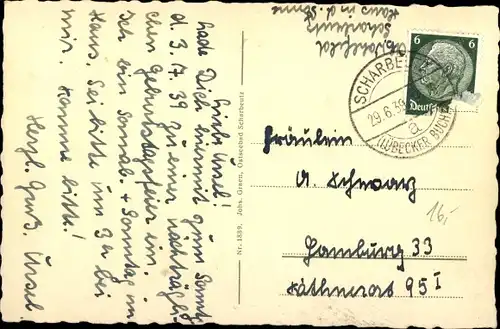 Liebe Ursel!
Lade Dich hiermit zum Sonnt.
d. 3.7.39 zu einer nachträgli-
chen Geburtstagsfeier ein.
Ich bin Sonnab. + Sonntag im
Haus. Sei bitte um 3 bei
mir. Komme bitte!
Herzl. Gruß Ursel.
Nr. 1889. Johs. Green, Ostseebad Scharbeutz
Scharbeutz
Haus in d. Sonne
6 6
Deutsches
SCHARBEUTZ
29.6.39
a
(LÜBECKER BUCHT)
Fräulein
A. Schwarz
Hamburg 33
95 I
16,-